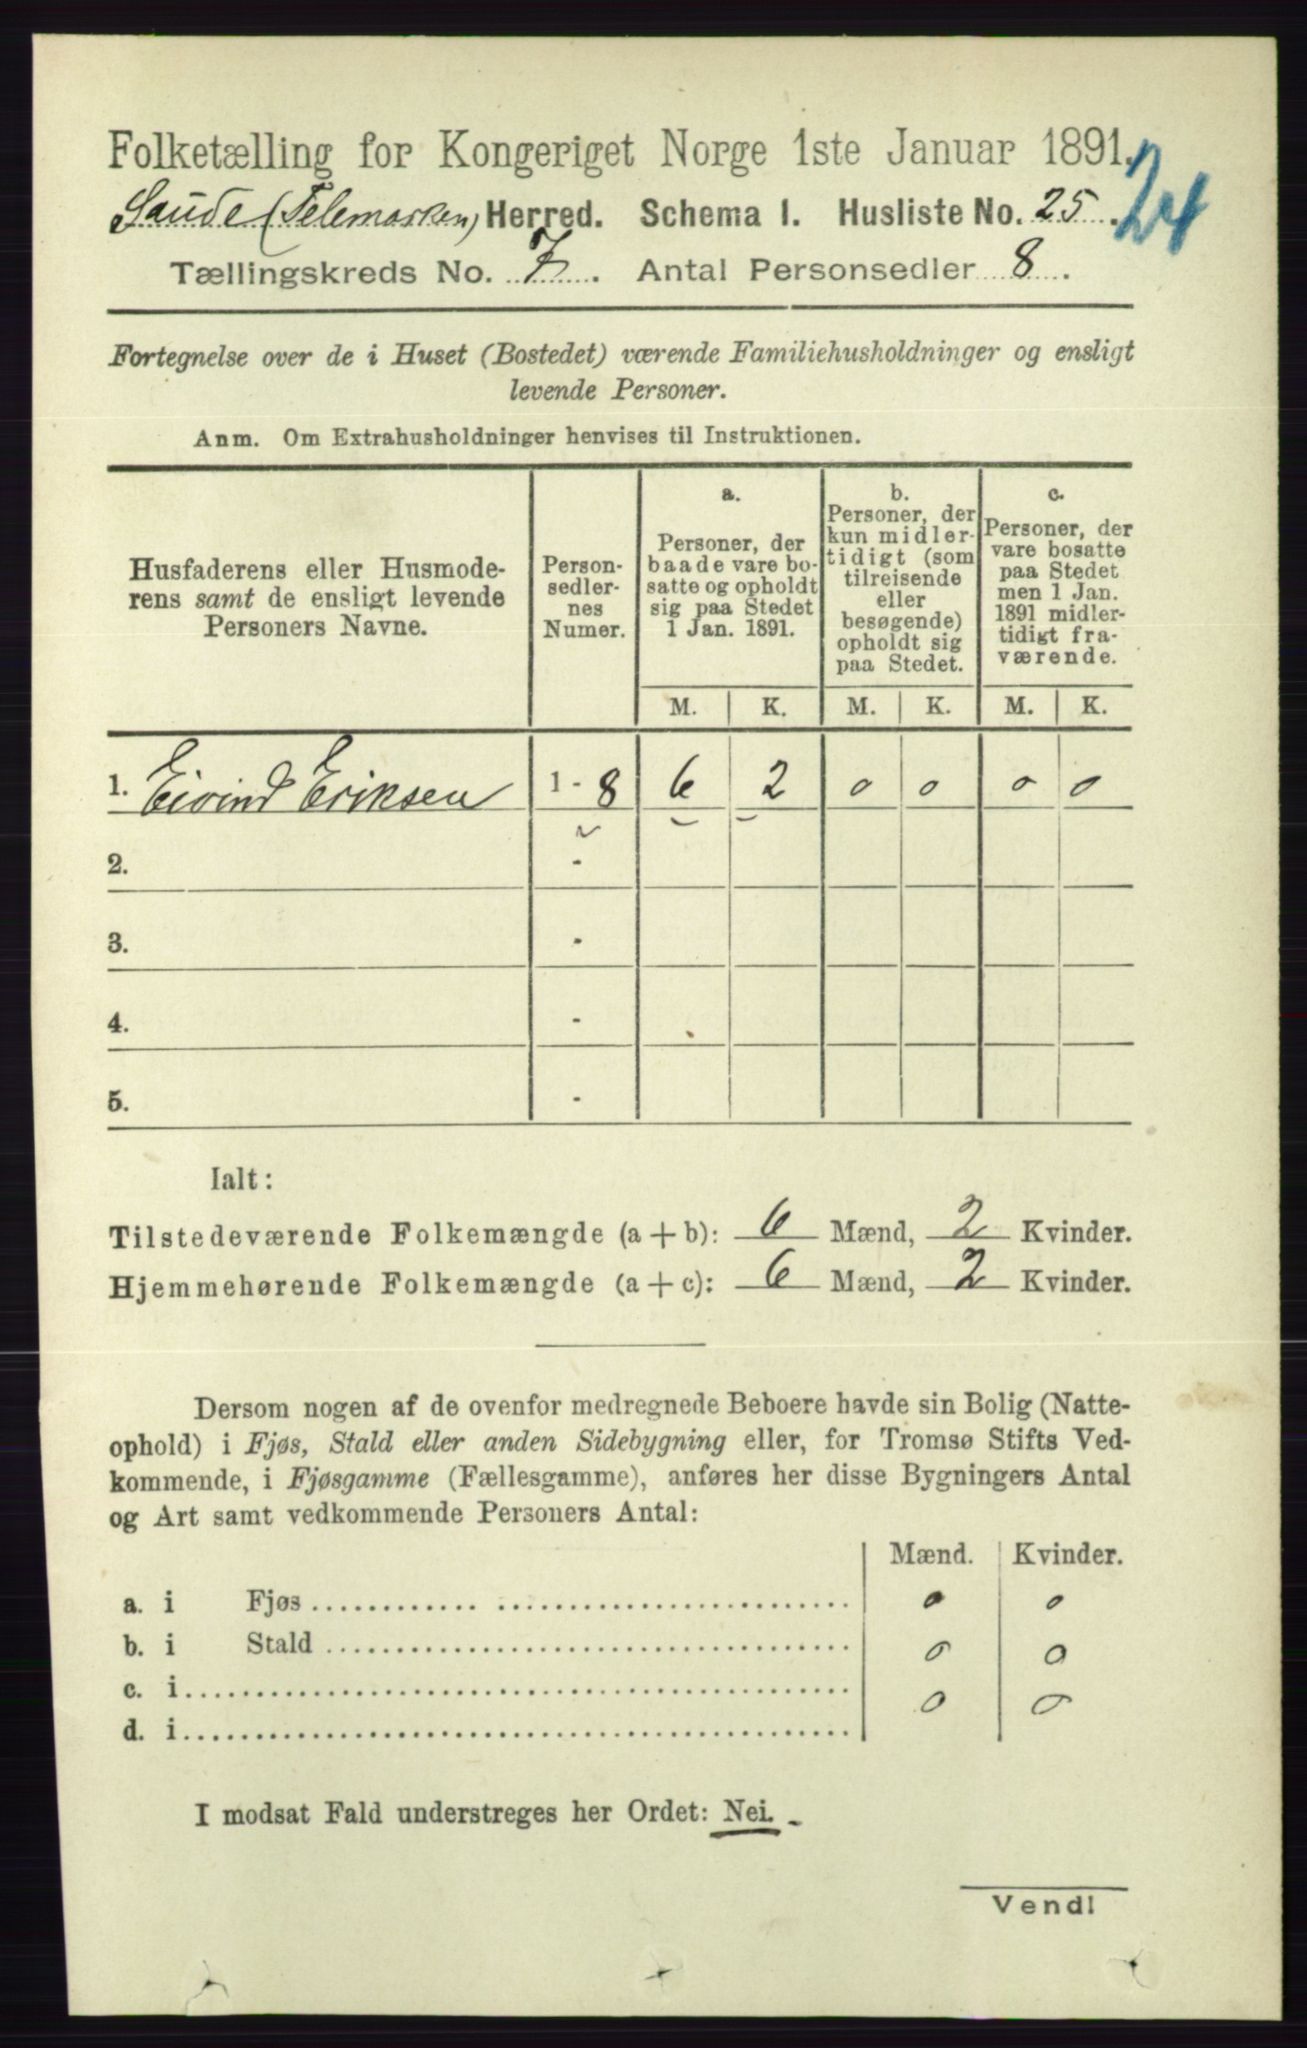 Folketælling for Kongeriget Norge 1ste Januar 1891.
Saude (Telemarken) Herred. Schema I. Husliste No. 25. 24
Tællingskreds No. 7. Antal Personsedler 8.
Fortegnelse over de i Huset (Bostedet) værende Familiehusholdninger og ensligt
levende Personer.
Anm. Om Extrahusholdninger henvises til Instruktionen.
Husfaderens eller Husmode-
rens samt de ensligt levende
Personers Navne.
Person-
sedler-
nes
Numer.
a.
Personer, der
baade vare bo-
satte og opholdt
sig paa Stedet
1 Jan. 1891.
b.
Personer, der
kun midler-
tidigt (som
tilreisende
eller
besøgende)
opholdt sig
paa Stedet.
c.
Personer, der
vare bosatte
paa Stedet
men 1 Jan.
1891 midler-
tidigt fra-
værende.
M. K. M. K. M. K.
1. Eivind Eriksen 1 - 8 6 2 0 0 0 0
2. -
3. -
4. -
5. -
Ialt:
Tilstedeværende Folkemængde (a+b): 6 Mænd, 2 Kvinder.
Hjemmehørende Folkemængde (a+c): 6 Mænd, 2 Kvinder.
Dersom nogen af de ovenfor medregnede Beboere havde sin Bolig (Natte-
ophold) i Fjøs, Stald eller anden Sidebygning eller, for Tromsø Stifts Ved-
kommende, i Fjøsgamme (Fællesgamme), anføres her disse Bygningers Antal
og Art samt vedkommende Personers Antal:
Mænd. Kvinder.
a. i Fjøs 0 0
b. i Stald 0 0
c. i 0 0
d. i
I modsat Fald understreges her Ordet: Nei.
Vend!